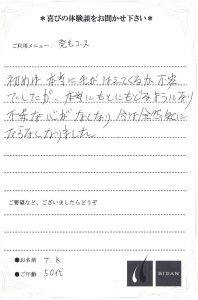 ＊喜びの体験談をお聞かせ下さい＊
ご利用メニュー: 発毛コース
初めは本当に毛がはえてくるか不安
でしたが、本当にもとにもどるようになり
不安な心がなくなり 今は全然気に
ならなくなりました。
ご要望など、ございましたらどうぞ
●お名前 T.K
●ご年齢 50代
BIDAN